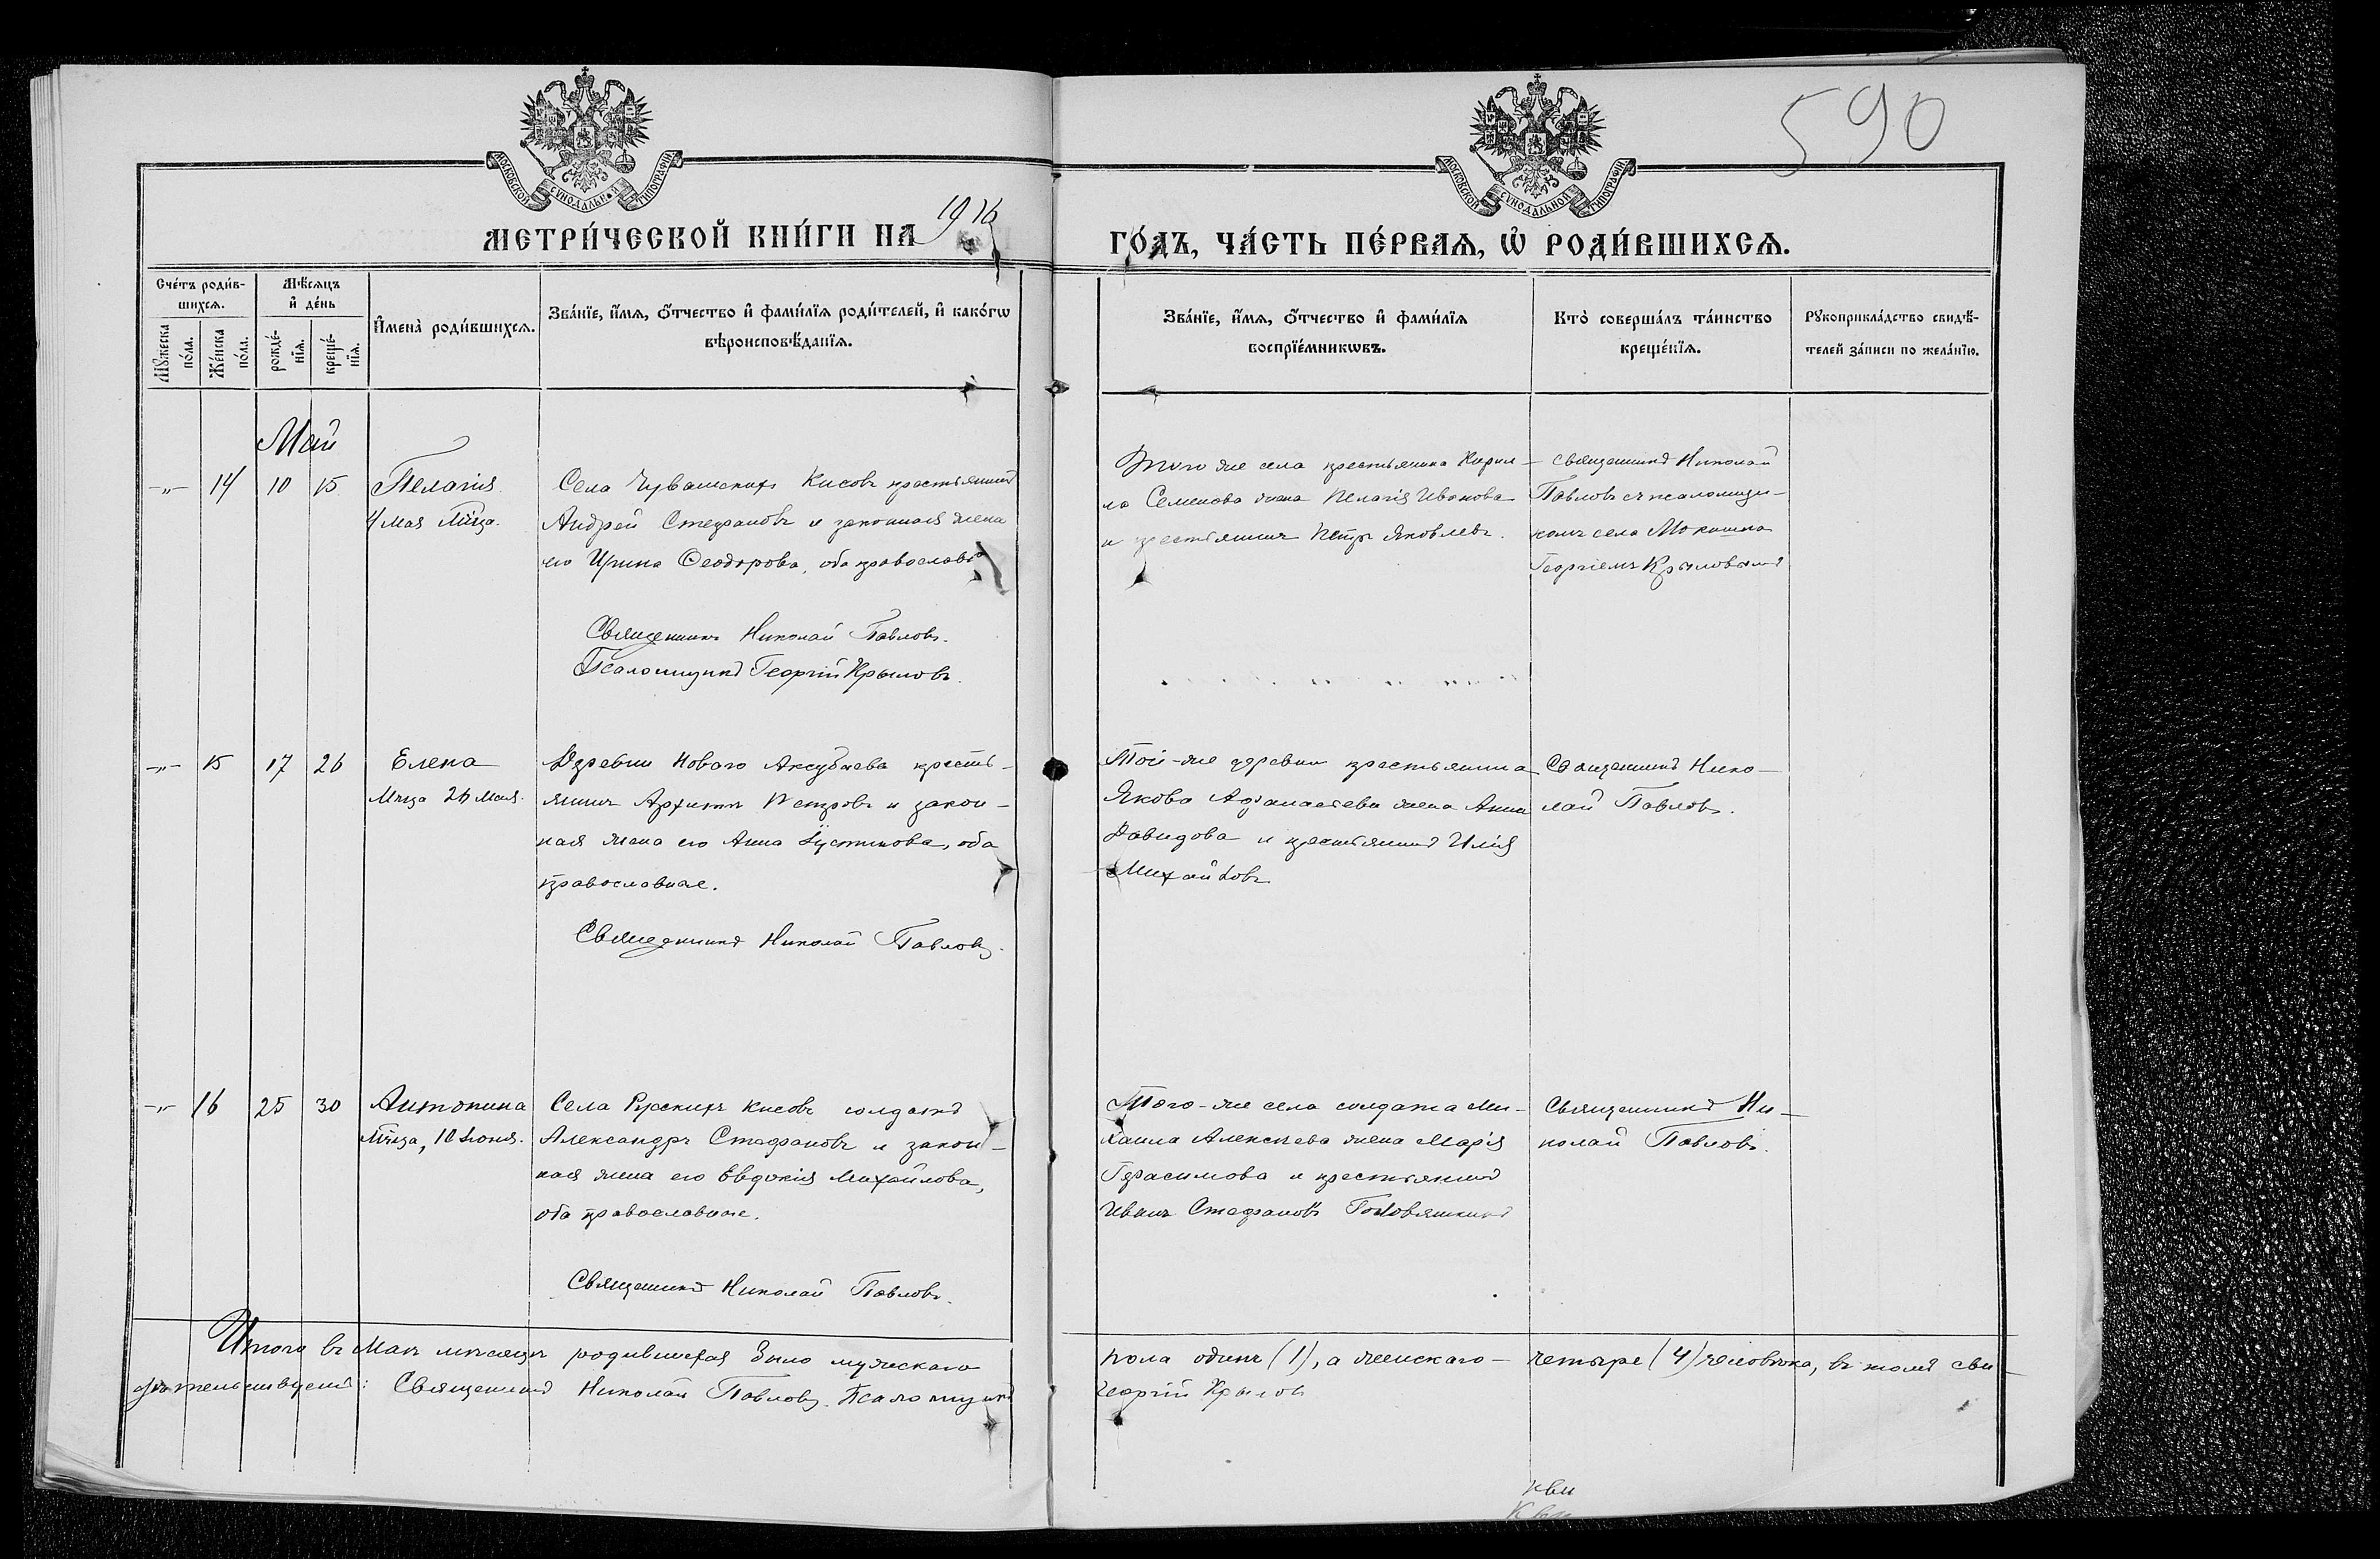 590
МОСКОВСКОЙ СѴНОДАЛЬНОЙ ТИПОГРАФІИ
МОСКОВСКОЙ СѴНОДАЛЬНОЙ ТИПОГРАФІИ
МЕТРИ́ЧЕСКОЙ КНИ́ГИ НА 1916 ГО́ДЪ, ЧА́СТЬ ПЕ́РВАЯ, Ѡ҆ РОДИ́ВШИХСЯ.
Сче́тъ роди́в-
шихся.
Мꙋжеска по́ла.
Же́нска по́ла.
Мѣ́сяцъ
и҆ де́нь
рожде́-
нїя.
креще́-
нїя.
И҆мена̀ роди́вшихся.
Зва́нїе, и҆́мя, ѻ҆́тчество и҆ фами́лїя роди́телей, и҆ како́гѡ
вѣроисповѣ́данїя.
Зва́нїе, и҆́мя, ѻ҆́тчество и҆ фами́лїя
воспрїе́мникѡвъ.
Кто̀ соверша́лъ та́инство
креще́нїя.
Рꙋкоприкла́дство свидѣ́-
телей за́писи по жела́нїю.
Май
-„- 14 10 15
Пелагія
4 мая М̃ца.
Села Чувашскихъ Кисовъ крестьянинъ
Андрей Стефановъ и законная жена
его Ирина Ѳеодорова, оба православн
Священникъ Николай Павловъ.
Псаломщикъ Георгій Крыловъ.
Того же села крестьянина Кирил-
ла Семенова жена Пелагія Иванова
и крестьянинъ Петръ Яковлевъ.
Священникъ Николай
Павловъ съ псаломщи-
комъ села Мокшина
Георгіемъ Крыловымъ
-„- 15 17 26
Елена
М̃ца 26 мая.
Деревни Новаго Аксубаева кресть-
янинъ Архиппъ Петровъ и закон-
ная жена его Анна Іустинова, оба
православные.
Священникъ Николай Павловъ.
Той-же деревни крестьянина
Якова Аѳанасьева жена Анна
Давидова и крестьянинъ Илія
Михайловъ
Священникъ Нико-
лай Павловъ.
-„- 16 25 30
Антонина
М̃ца, 10 Іюня.
Села Русскихъ Кисовъ солдатъ
Александръ Стефановъ и закон-
ная жена его Евдокія Михайлова,
оба православные.
Священникъ Николай Павловъ.
Того-же села солдата Ми-
хаила Алексѣева жена Марія
Герасимова и крестьянинъ
Иванъ Стефановъ
Священникъ Ни-
колай Павловъ.
Итого въ Маѣ мѣсяцѣ родившихся было мужескаго пола одинъ (1), а женскаго - четыре (4) человѣка, въ томъ сви-
дѣтельствуемъ: Священникъ Николай Павловъ. Псаломщикъ Георгій Крыловъ